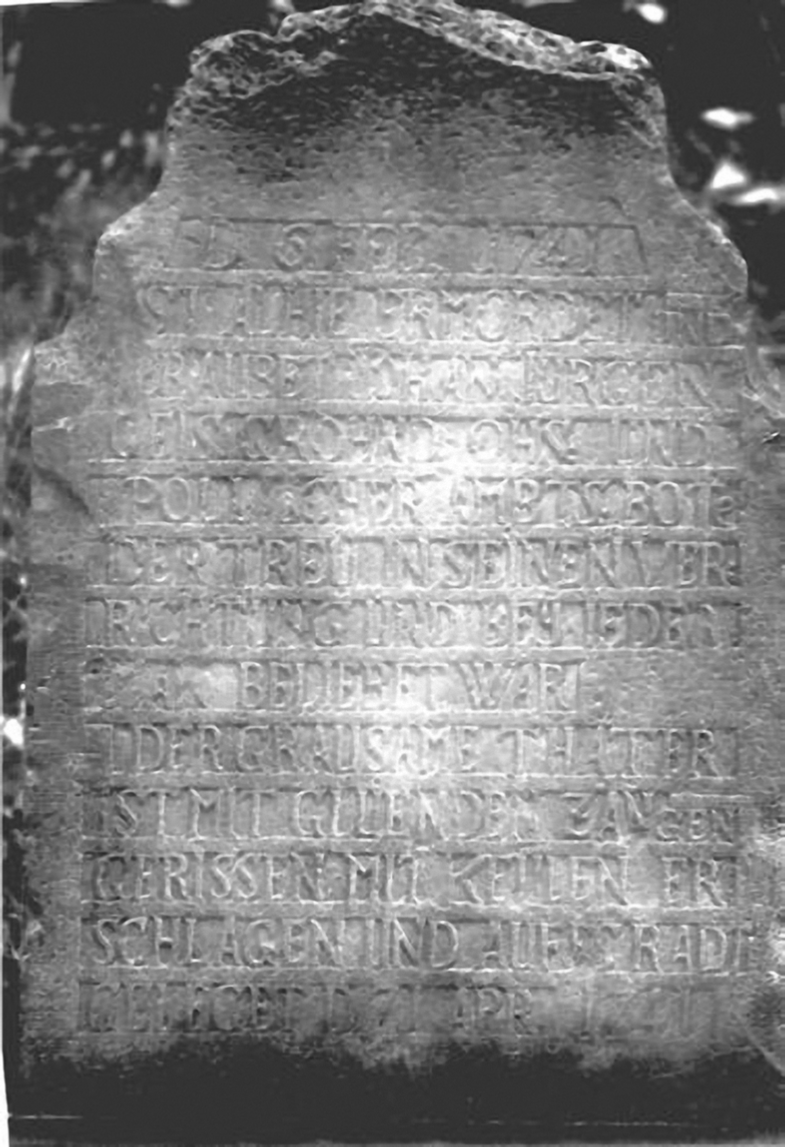 D. 6 FEB. 1741
IST ALHIE ERMORDET UND
BERAUBET JOHAN JERGEN
OHS: UND
POLL SCHER AMBTS BOTE
DER TREU IN SEINEN VER
RICHTUNG UND BEY JEDER
BELIEBET WAR
DER GRAUSAME THÄTER
IST MIT GLUENDEN ZANGEN
GERISSEN MIT KEULEN ER
SCHLAGEN UND AUFS RAD
GELEGET D. 21 APR. 1741